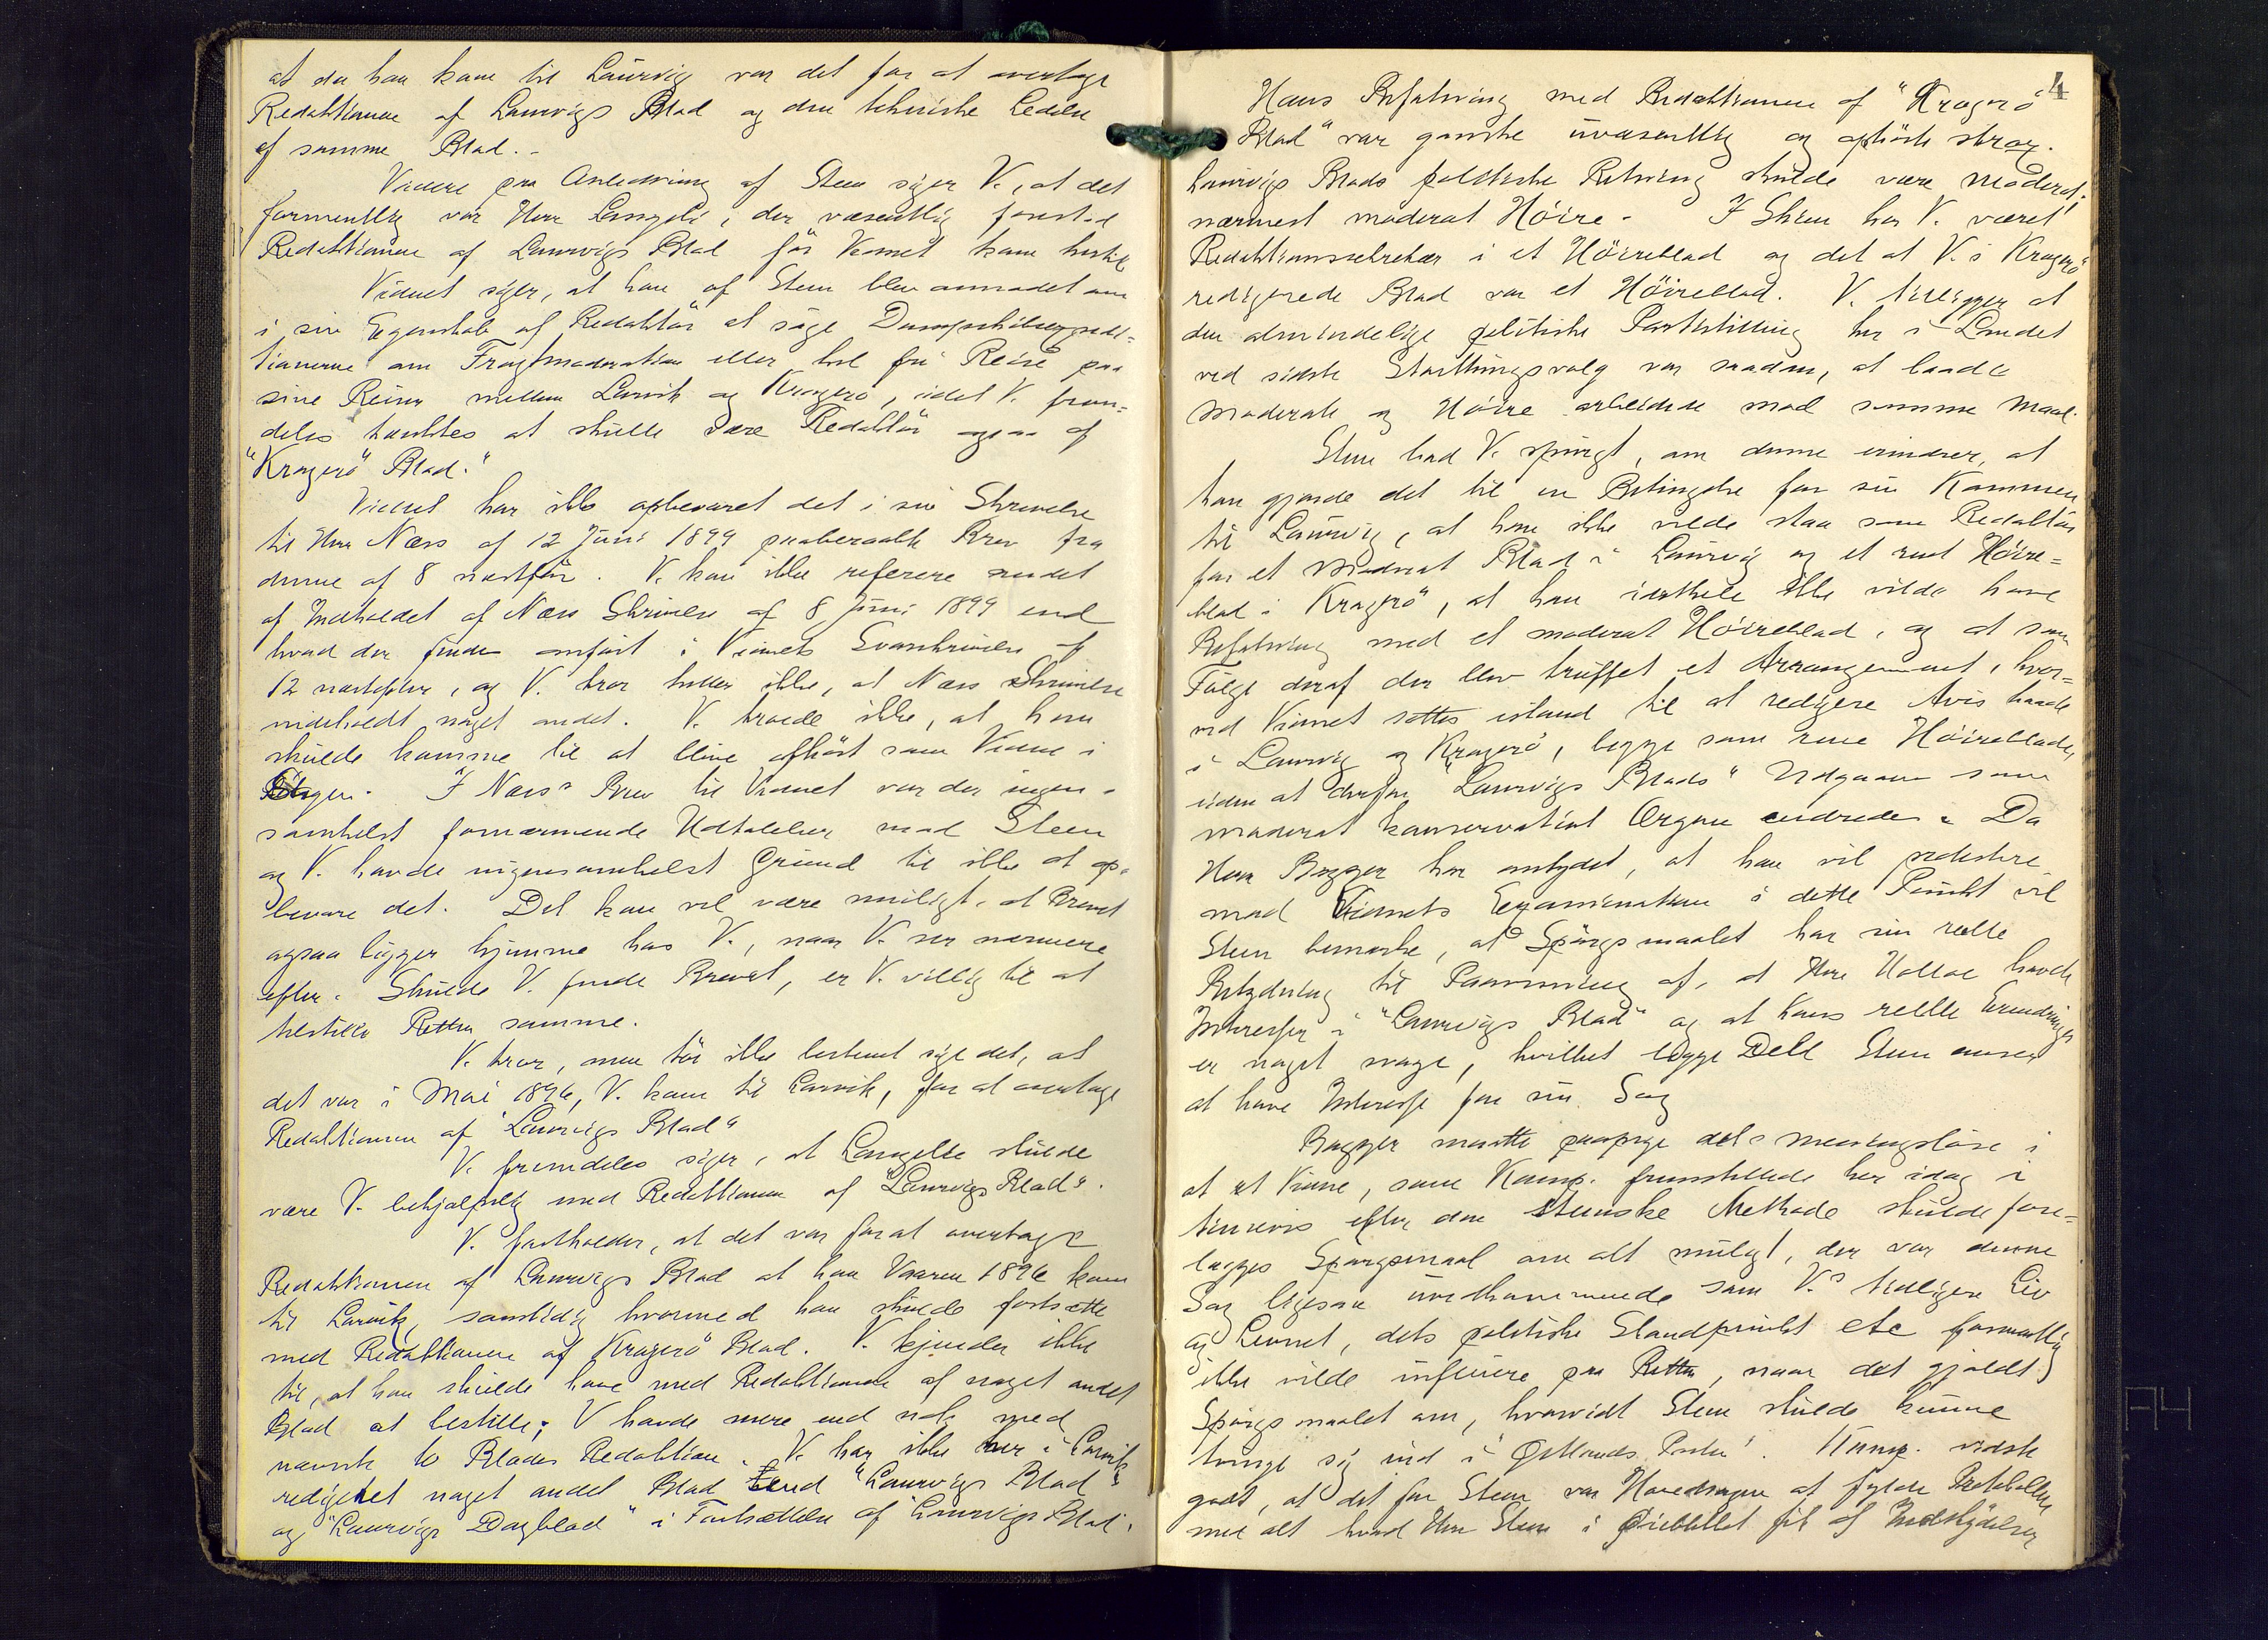 at da han kom til Laurvig var det for at overtage
Redaktionen af Laurvigs Blad og den tekniske Ledelse
af samme Blad. -
Videre paa Anledning af Steen siger V., at det
formentlig var Herr Langeli, der væsentlig forestod
Redaktionen af Laurvigs Blad før Vidnet kom hertil
Vidnet siger, at han af Steen blev anmodet om
i sin Egenskab af Redaktör at søge Dampskibsexpedi-
tionerne om Fragtmoderation eller hel fri Reise paa
sine Reiser mellem Larvik og Kragerö, idet V. frem-
deles tænktes at skulle være Redaktör ogsaa af
"Kragerö Blad."
Vidnet har ikke opbevaret det i sin Skrivelse
til Herr Næss af 12 Juni 1899 paaberaabte Brev fra
denne af 8 næstfør. V. kan ikke referere andet
af Indholdet af Næss Skrivelse af 8 Juni 1899 end
hvad der findes anført i Vidnets Svarskrivelse af
12 næstefter, og V. tror heller ikke, at Næss Skrivelse
indeholdt noget andet. V. troede ikke, at han
skulde komme til at blive afhørt som Vidne i
Sagen. I Næss' Brev til Vidnet var der ingen-
somhelst fornærmende Udtalelser mod Steen
og V. havde ingensomhelst Grund til ikke at op-
bevare det. Det kan vel være muligt, at Brevet
ogsaa ligger hjemme hos V., naar V. ser nærmere
efter. Skulde V. finde Brevet, er V. villig til at
tilstille Retten samme.
V. tror, men tör ikke bestemt sige det, at
det var i Mai 1896, V. kom til Larvik, for at overtage
Redaktionen af "Laurvigs Blad"
V. fremdeles siger, at Langelie skulde
være V. behjælpelig med Redaktionen af "Laurvigs Blad".
V. fastholder, at det var for at overtage
Redaktionen af Laurvigs Blad at han Vaaren 1896 kom
til Larvik, samtidig hvormed han skulde fortsætte
med Redaktionen af Kragerö Blad. V. kjender ikke
til, at han skulde have med Redaktionen af noget andet
Blad at bestille; V havde mere end nok med
nævnte to Blades Redaktion. V. har ikke her i Larvik
redigeret noget andet Blad end "Laurvigs Blad"
og "Laurvigs Dagblad" i Fortsættelse af "Laurvigs Blad".
4
Hans Befatning med Redaktionen af "Kragerö
Blad" var ganske uvæsentlig og ophörte strax.
Laurvigs Blads politiske Retning skulde være moderat,
nærmest moderat Höire. I Skien har V. været
Redaktionssekretær i et Höireblad og det af V. i Kragerö
redigerede Blad var et Höireblad. V. tillægger at
den almindelige politiske Partistilling her i Landet
ved sidste Storthingsvalg var saadan, at baade
Moderate og Höire arbeidede mod samme Maal.
Steen bad V. spurgt, om denne erindrer, at
han gjorde det til en Betingelse for sin Kommen
til Laurvig, at han ikke vilde staa som Redaktör
for et moderat Blad i Laurvig og et rent Höire-
blad i Kragerö", at han istedet ikke vilde have
Befatning med et moderat Höireblad, og at som
Følge deraf der blev truffet et Arrangement, hvor-
ved Vidnet sattes istand til at redigere Avis baade
i Laurvig og Kragerö, begge som rene Höireblade,
uden at derfor "Laurvigs Blads" Udgaaen som
moderat konservativt Organ endredes. Da
Herr Bugger har antydet, at han vil protestere
mod Vidnets Examination i dette Punkt vil
Steen bemærke, at Spørgsmaalet har sin rette
Betydning til Paavisning af, at Herr Holtae havde
Interesser i "Laurvigs Blad" og at hans rette Erindringer
er noget svage, hvilket begge Dele Steen anser
at have Interesse for sin Sag
Bugger maatte paapege det meningsløse i
at et Vidne, som Komp. fremstillede her idag i
timevis efter den Steenske Methode skulde fore-
lægges Spørgsmaal om alt muligt, der var denne
Sag ligesaa uvedkommende som V.s tidligere Liv
og Levnet, dets politiske Standpunkt etc formentlig
ikke vilde influere paa Retten, naar det gjaldt
Spørgsmaalet om, hvorvidt Steen skulde kunne
trænge sig ind i "Østlands Posten". Komp. vidste
godt, at det for Steen var Hovedsagen at fylde Protokollen
med alt hvad Herr Steen i Øieblikket fik af Indskydelser